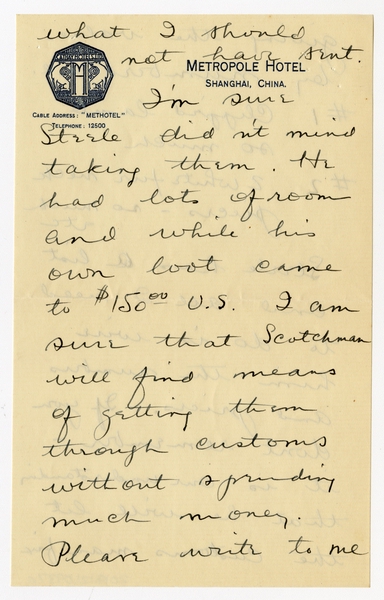 what I should
not have sent.
CATHAY HOTELS LTD.
M
METROPOLE HOTEL
SHANGHAI, CHINA.
CABLE ADDRESS: "METHOTEL"
TELEPHONE: 12500
I'm sure
Steele did n't mind
taking them. He
had lots of room
and while his
own loot came
to $150.00 U.S. I am
sure that Scotchman
will find means
of getting them
through customs
without spending
much money.
Please write to me